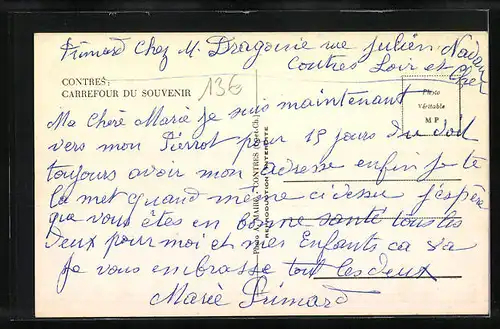 Primard Chez M. Dragonie rue Julien Nadau
Contres Loir et Cher
CONTRES :
CARREFOUR DU SOUVENIR
136
Photo
Véritable
M P
Ma Chère Marie je suis maintenant
vers mon Pierrot pour 15 jours Tu doit
toujours avoir mon adresse enfin je te
la met quand même ci dessu j'espère
que vous êtes en bonne santé tous les
deux pour moi et mes Enfants ca va
Je vous embrasse tout les deux
Marie Primard
CONTRES (Loir-et-Ch.)
REPRODUCTION INTERDITE